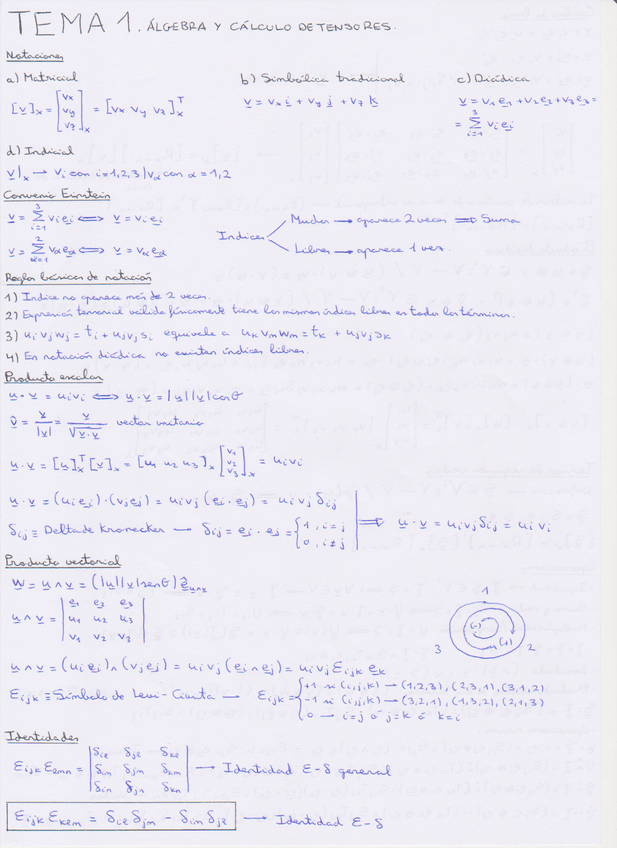 TEMA 1. ÁLGEBRA Y CÁLCULO DE TENSORES.
Notaciones
a) Matricial b) Simbólica tradicional c) Diádica
[v]ₓ = [vx vy vz]ₓ = [vx vy vz]ₓᵀ v = vx i + vy j + vz k v = v1e1 + v2e2 + v3e3 =
= Σ(i=1..3) vi ei
d) Indicial
v|ₓ → vi con i=1,2,3 | vα con α=1,2
Convenio Einstein
v = Σ(i=1..3) vi ei ⟺ v = vi ei
v = Σ(α=1..2) vα eα ⟺ v = vα eα
Indices
Mudos → aparece 2 veces ⟹ Suma
Libres → aparece 1 vez.
Reglas básicas de notación
1) Indice no aparece más de 2 veces.
2) Expresión tensorial válida físicamente tiene los mismos índices libres en todos los términos.
3) ui vj wj = ti + uj vj si equivale a uk vm wm = tk + uj vj sk
4) En notación diádica no existen índices libres.
Producto escalar
u · v = ui vi ⟺ u · v = |u||v| cosθ
v̂ = v/|v| = v/√(v·v) vector unitario
u · v = [u]ₓᵀ [v]ₓ = [u1 u2 u3]ₓ [v1 v2 v3]ₓ = ui vi
u · v = (ui ei) · (vj ej) = ui vj (ei · ej) = ui vj δij
δij ≡ Delta de Kronecker → δij = ei · ej = { 1, i=j 0, i≠j ⟹ u · v = ui vj δij = ui vi
Producto vectorial
w = u ∧ v = (|u||v| senθ) ê u∧v
u ∧ v = | e1 e2 e3
u1 u2 u3
v1 v2 v3 |
1
(-)
(+)
3 2
u ∧ v = (ui ei) ∧ (vj ej) = ui vj (ei ∧ ej) = ui vj Eijk ek
Eijk ≡ Símbolo de Levi-Civita → Eijk = { +1 si (i,j,k) → (1,2,3), (2,3,1), (3,1,2)
-1 si (i,j,k) → (3,2,1), (1,3,2), (2,1,3)
0 → i=j ó j=k ó k=i
Identidades
Eijk Eℓmn = | δiℓ δjℓ δkℓ
δim δjm δkm
δin δjn δkn | → Identidad E-δ general
Eijk Ekℓm = δiℓ δjm - δim δjℓ → Identidad E-δ